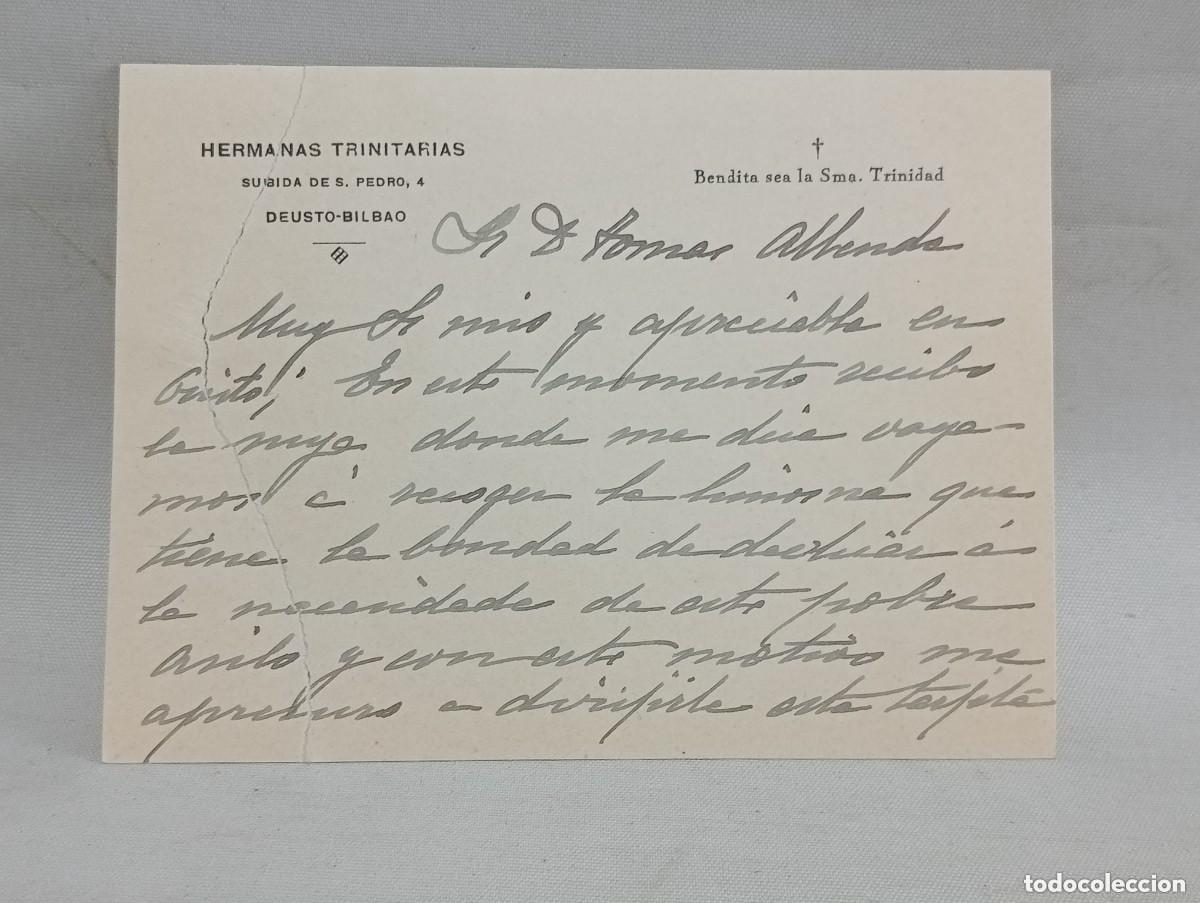 HERMANAS TRINITARIAS
SUBIDA DE S. PEDRO, 4
DEUSTO-BILBAO
†
Bendita sea la Sma. Trinidad
Sr D Tomas Albenda
Muy Sr mio y apreciable en
Cristo; En este momento recibo
la suya donde me dice vaya-
mos á recoger la limosna que
tiene la bondad de dedicar á
la necesidade de este pobre
Asilo y con este motivo me
apresuro a dirigirle esta tarjeta
todocoleccion